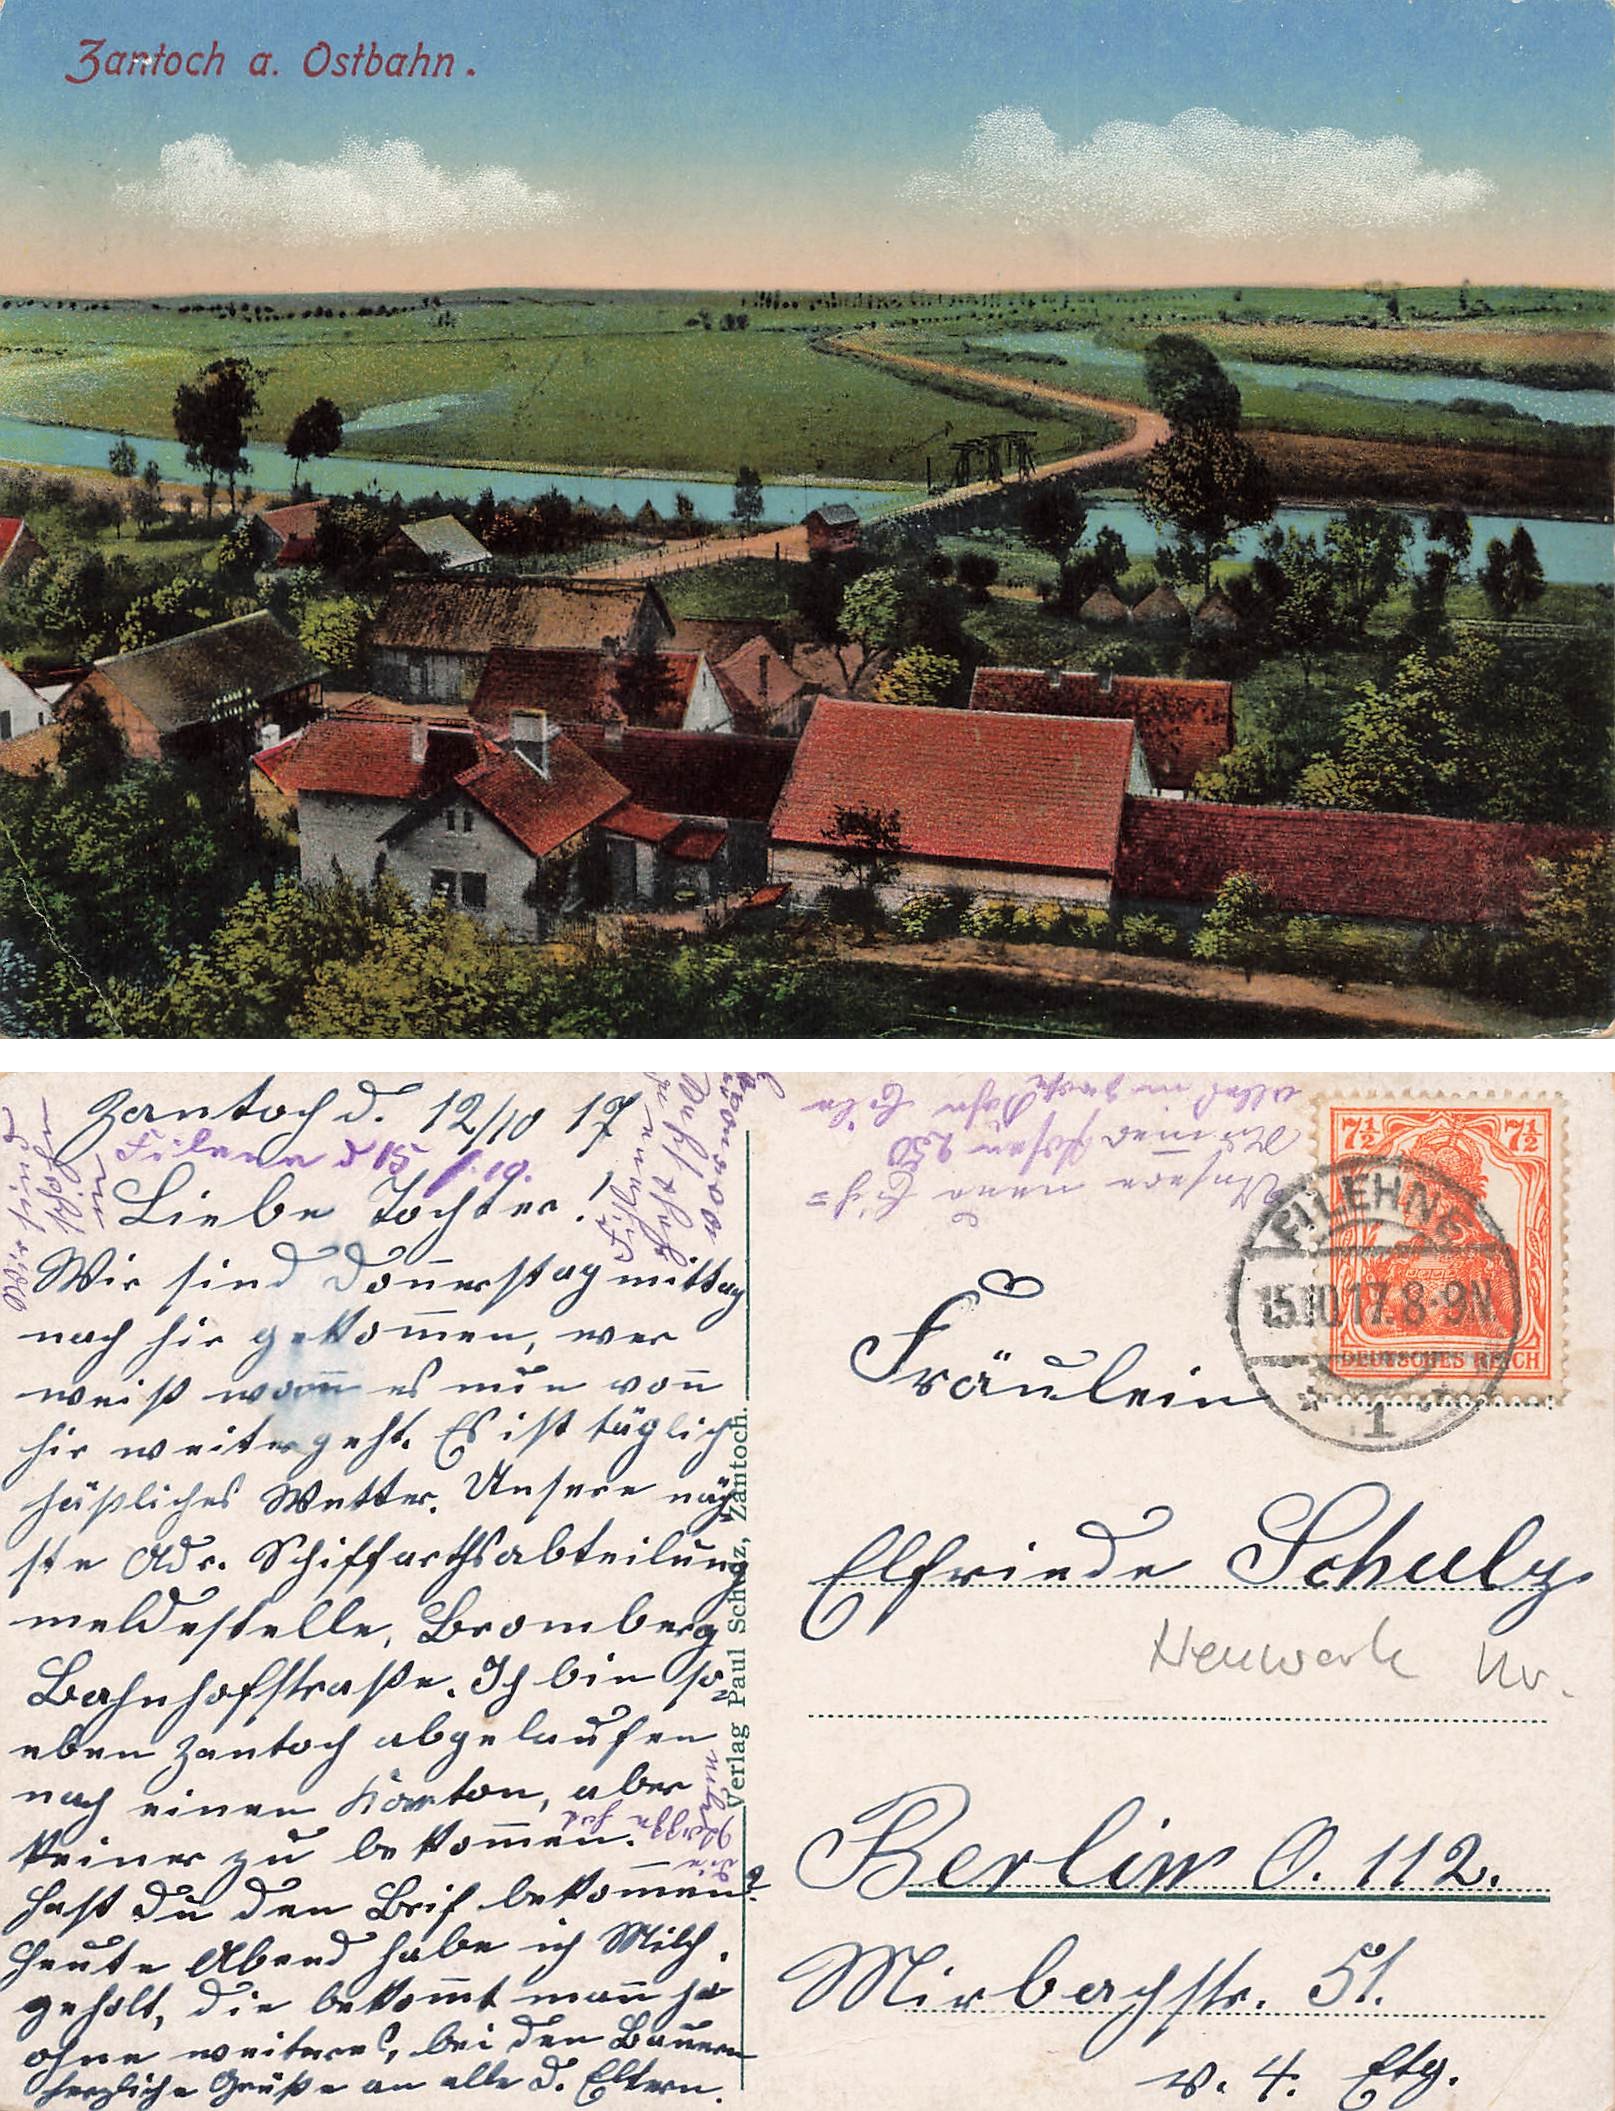 Zantoch a. Ostbahn.
Zantoch d. 12/10 17
Filene d 15
Liebe Tochter!
Wir sind Donnerstag mittag
nach hir gekommen, wer
weiß wann es nun von
hir weitergeht. Es ist täglich
häßliches Wetter. Unsere näch-
ste Adr. Schiffarthsabteilung
meldestelle, Bromberg
Bahnhofstraße. Ich bin so-
eben Zantoch abgelaufen
nach einen Karton, aber
keiner zu bekommen.
Hast du den Brif bekommen?
Heute Abend habe ich Milch
geholt, die bekommt man ja
ohne weiteres, bei den Bauern
herzliche Grüße an alle d. Eltern.
Verlag Paul Scholz, Zantoch.
Unsere neue
Posen 250
7½ 7½
DEUTSCHES REICH
FILEHNE
15.10.17.8-9N.
* 1 *
Fräulein
Elfriede Schulz
Neuwerk Nr.
Berlin O. 112.
Mirbachstr. 51.
v. 4. Etg.